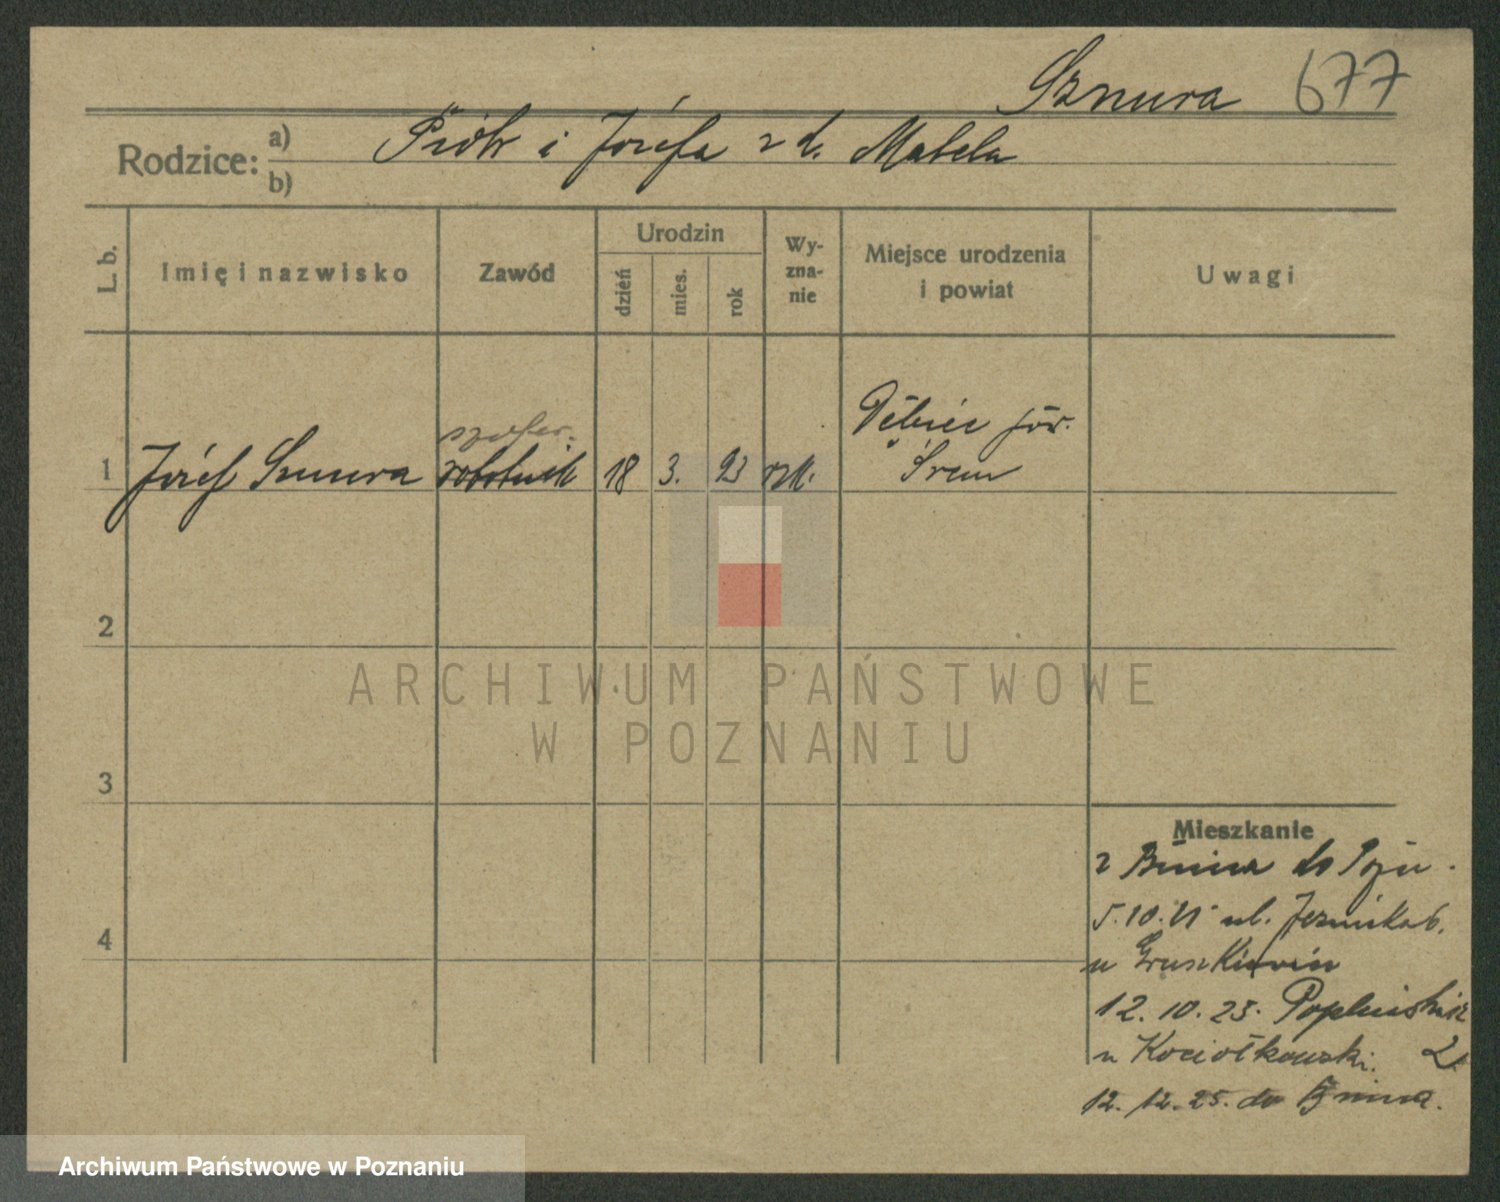 Sznura 677
Rodzice: a) Piotr i Józefa z d. Matela
b)
L. b.
Imię i nazwisko
Zawód
Urodzin
dzień
mies.
rok
Wy-
zna-
nie
Miejsce urodzenia
i powiat
Uwagi
szofer
1 Józef Sznura robotnik 18 3. 93 rzk. Dębiec pow.
Śrem
2
3
4
Mieszkanie
z Bnina do Pozn.
5.10. ul.
u
12.10.25.
u Kociołkowski. 2
12.12.25. do Bnina.
ARCHIWUM PAŃSTWOWE
W POZNANIU
Archiwum Państwowe w Poznaniu